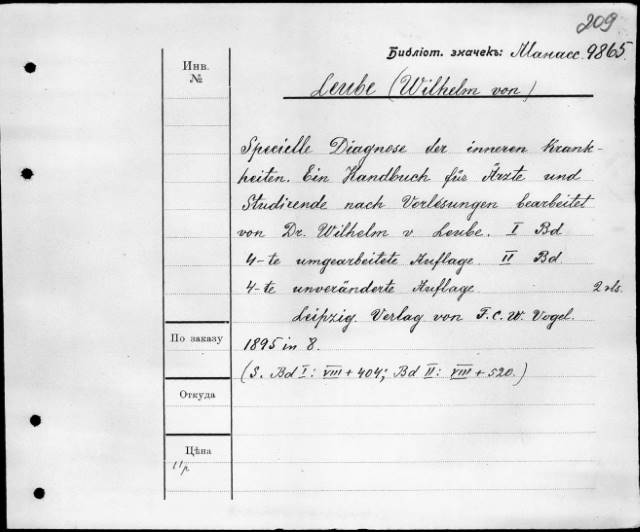 209
Библiот. значекъ: Манасс. 9865.
Инв.
№
Leube (Wilhelm von)
Specielle Diagnose der inneren Krank-
heiten. Ein Handbuch für Ärzte und
Studirende nach Vorlesungen bearbeitet
von Dr. Wilhelm v. Leube. I Bd
4-te umgearbeitete Auflage. II Bd.
4-te unveränderte Auflage. 2 vls.
Leipzig. Verlag von F. C. W. Vogel.
По заказу
1895 in 8.
(S. Bd I: VIII + 404; Bd II: VIII + 520.)
Откуда
Цѣна
11р